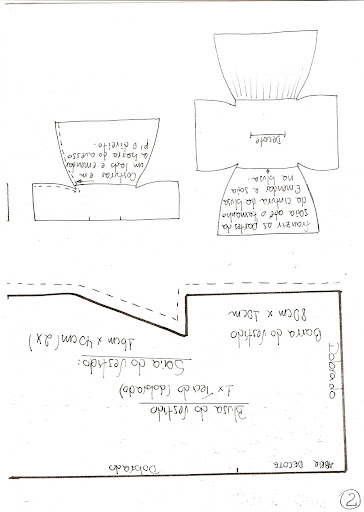 2
ABRIR DECOTE
Dobrado
Blusa do Vestido
1x Tecido (dobrado)
Saia do Vestido:
16cm x 40cm (2x)
Barra do Vestido
80cm x 10cm
Franzir as partes da
saia até o tamanho
da cintura da blusa
Emenda a saia
na blusa.
Decote
Costurar em
um lado e emendar
a barra do avesso
p/ o direito.